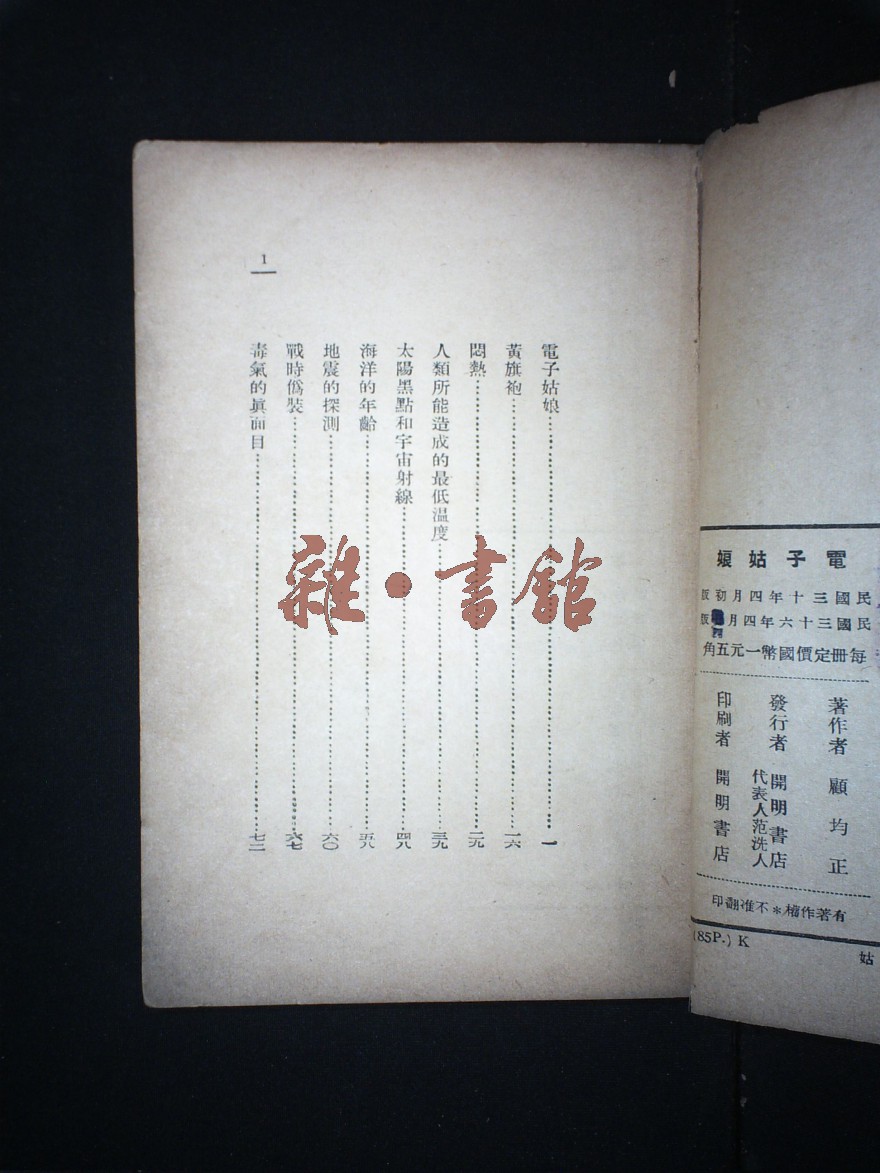 1
電子姑娘 一
黃旗袍 一六
悶熱 二九
人類所能造成的最低溫度 三九
太陽黑點和宇宙射線 四八
海洋的年齡 五八
地震的探測 六〇
戰時僞裝 六七
毒氣的眞面目 七二
雜·書館
電子姑娘
民國三十年四月初版
民國三十六年四月版
每冊定價國幣一元五角
著作者 顧均正
發行者 開明書店
代表人范洗人
印刷者 開明書店
有著作權*不准翻印
(85P.) K
姑